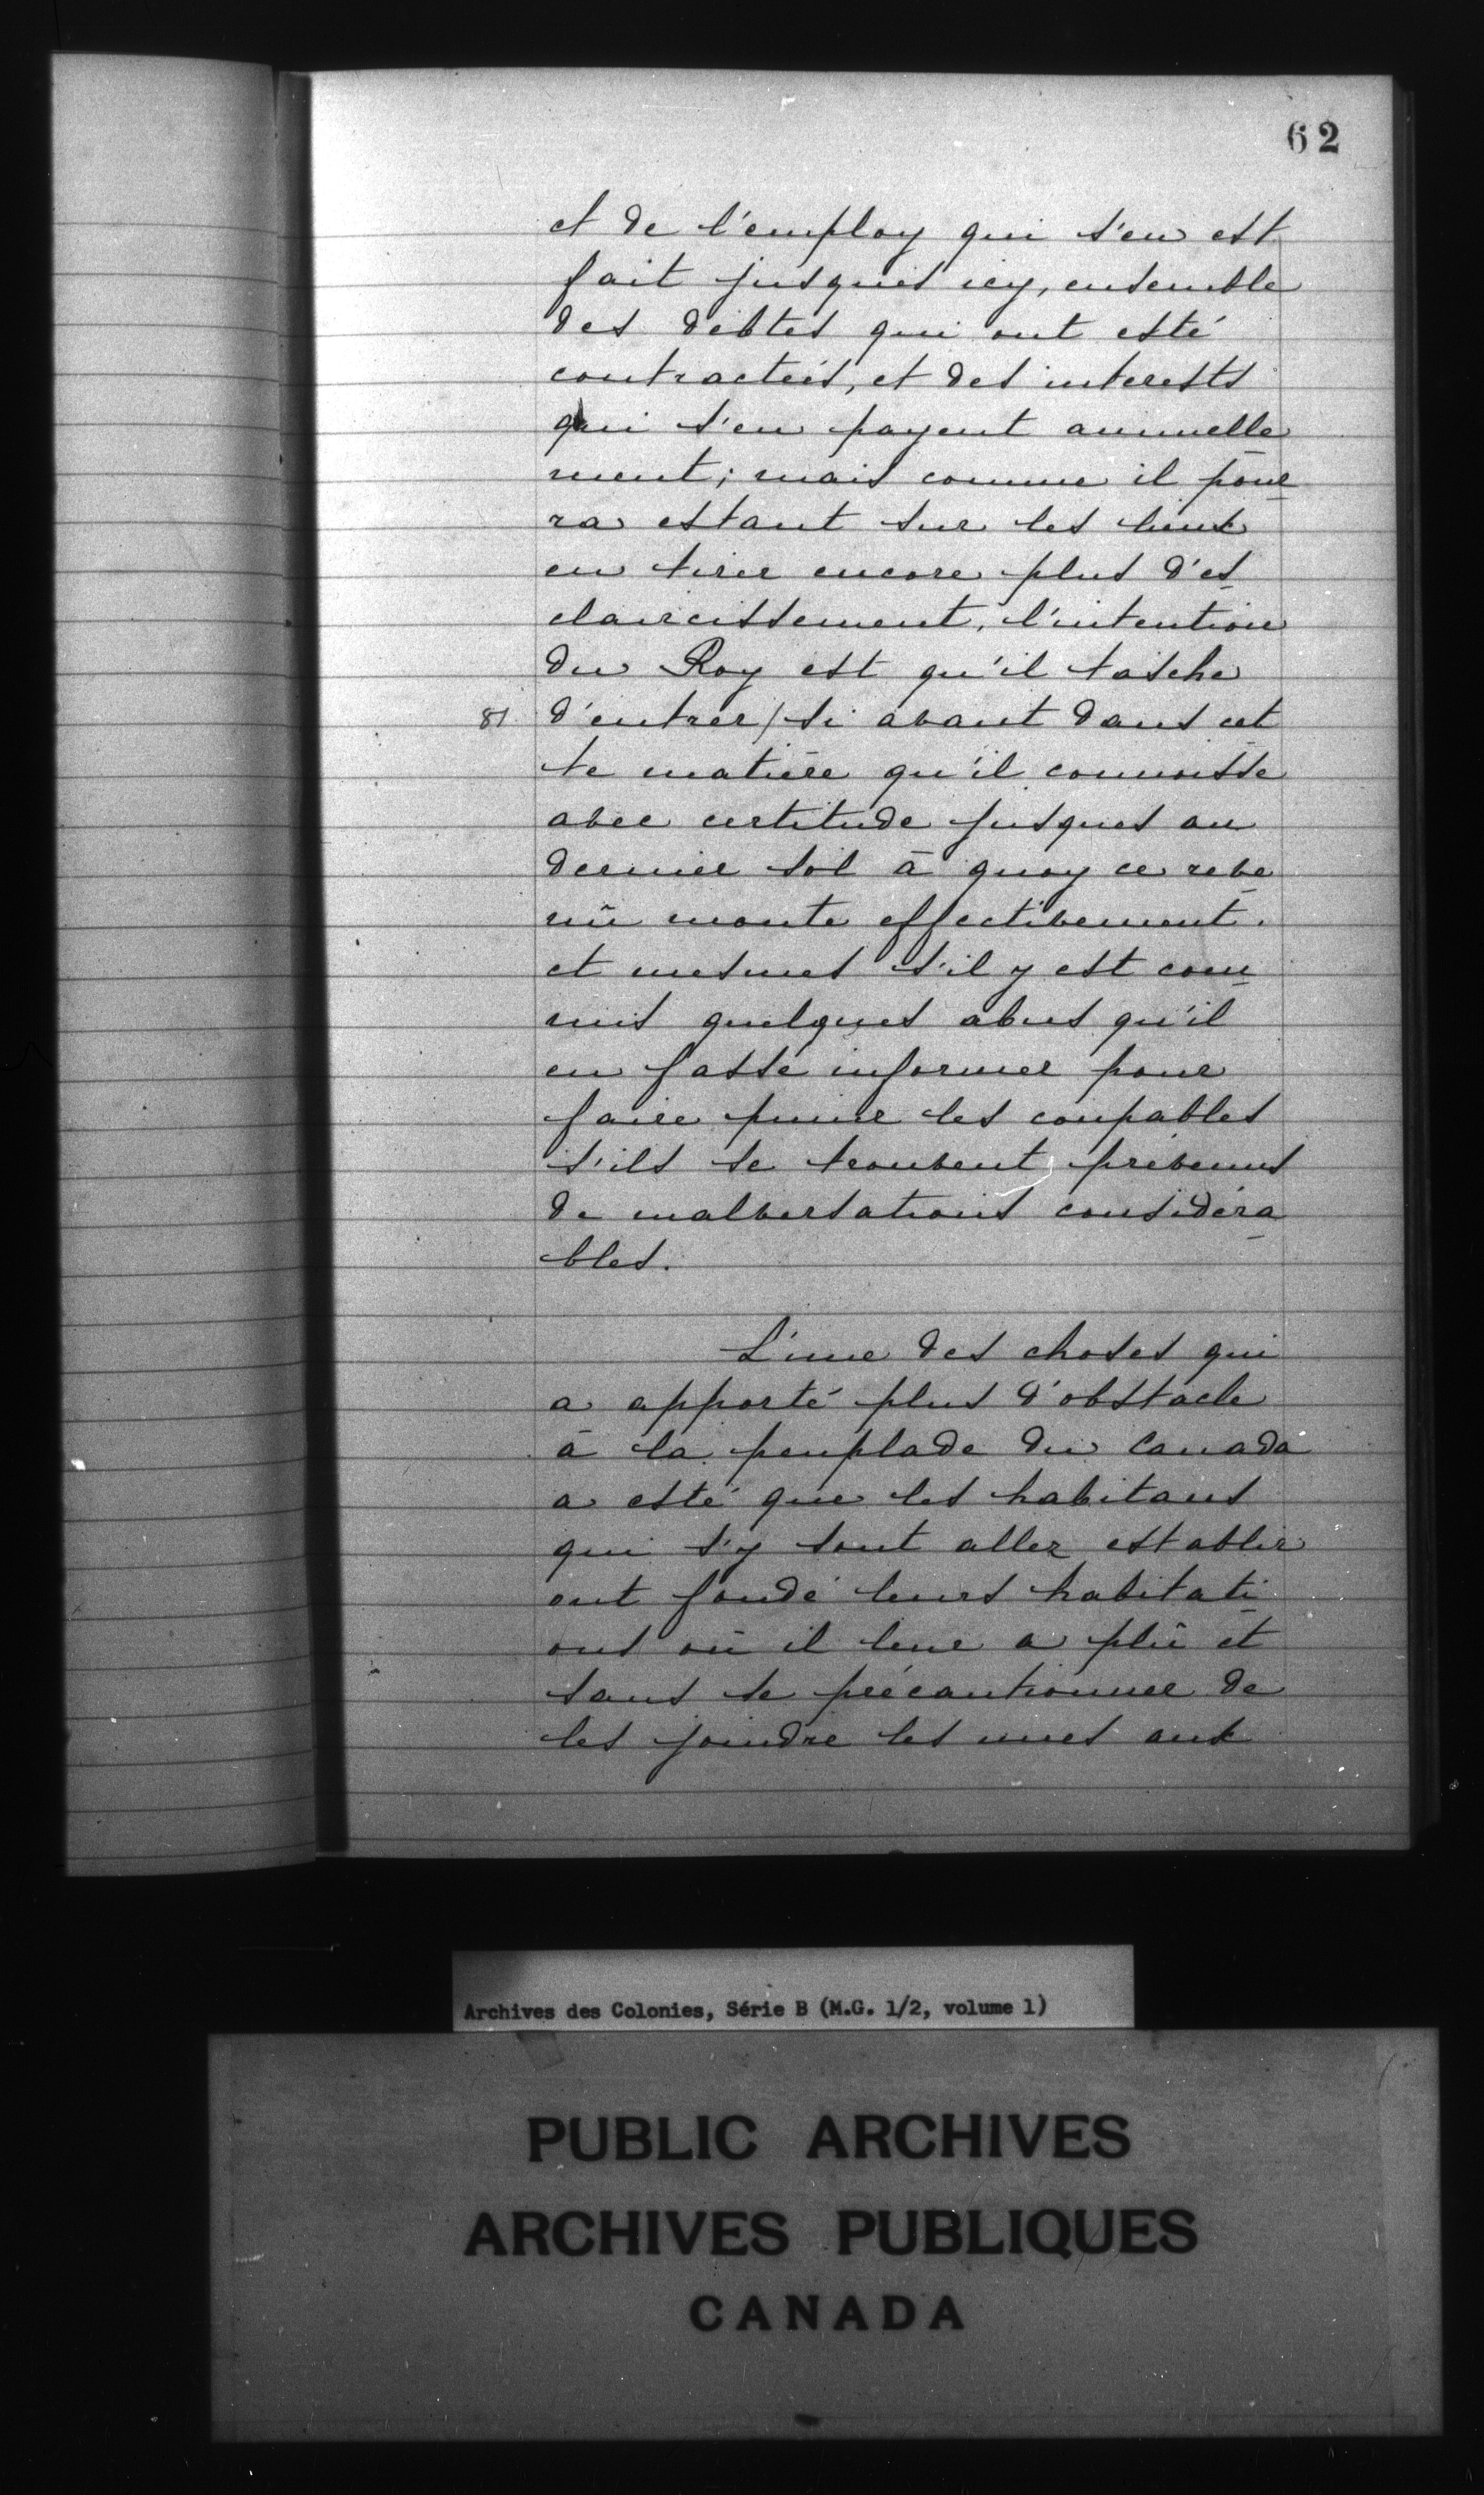 62
et de l'employ qui s'en est
fait jusques icy, ensemble
des debtes qui ont esté
contractées, et des interests
qui s'en payent annuelle
ment; mais comme il pour
ra estant sur les lieux
en tirer encore plus d'es
claircissement, l'intention
du Roy est qu'il tasche
81 d'entrer / si avant dans cet
te matière qu'il connoisse
avec certitude jusques au
dernier sol à quoy ce reve
nü monte effectivement.
et mesmes s'il y est com
mis quelques abus qu'il
en fasse informer pour
faire punir les coupables
s'ils se trouvent prévenus
de malversations considéra
bles.
L'une des choses qui
a apporté plus d'obstacle
à la peuplade du Canada
a esté que les habitans
qui s'y sont allez establir
ont fondé leurs habitati
ons où il leur a plû et
sans se précautionner de
les joindre les unes aux
Archives des Colonies, Série B (M.G. 1/2, volume 1)
PUBLIC ARCHIVES
ARCHIVES PUBLIQUES
CANADA